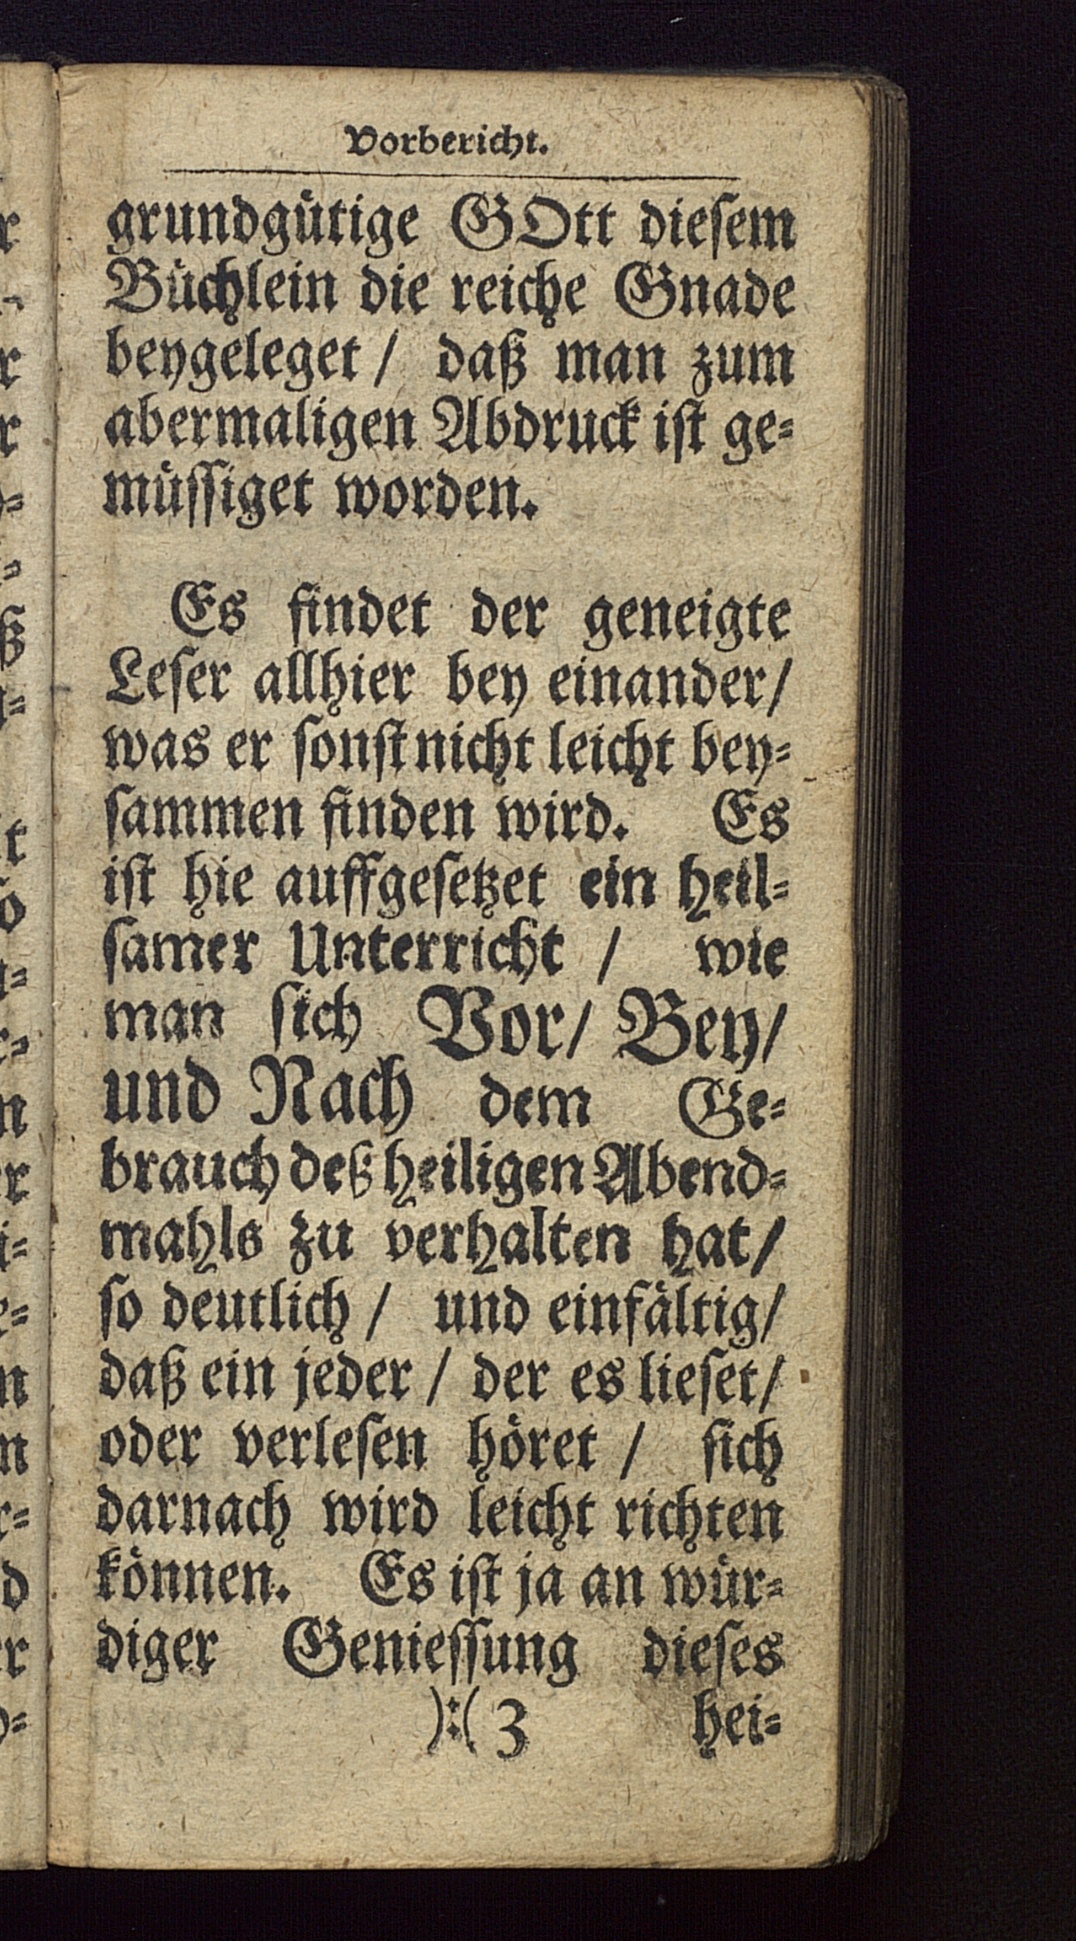 Vorbericht.
grundgütige GOtt dieſem
Büchlein die reiche Gnade
beygeleget / daß man zum
abermaligen Abdruck iſt ge⸗
müſſiget worden.
Es findet der geneigte
Leſer allhier bey einander/
was er ſonſt nicht leicht bey⸗
ſammen finden wird. Es
iſt hie auffgeſetzet ein heil⸗
ſamer Unterricht / wie
man ſich Vor/ Bey/
und Nach dem Ge⸗
brauch deß heiligen Abend⸗
mahls zu verhalten hat/
ſo deutlich / und einfältig/
daß ein jeder / der es lieſet/
oder verleſen höret / ſich
darnach wird leicht richten
können. Es iſt ja an wür⸗
diger Genieſſung dieſes
):( 3 hei⸗